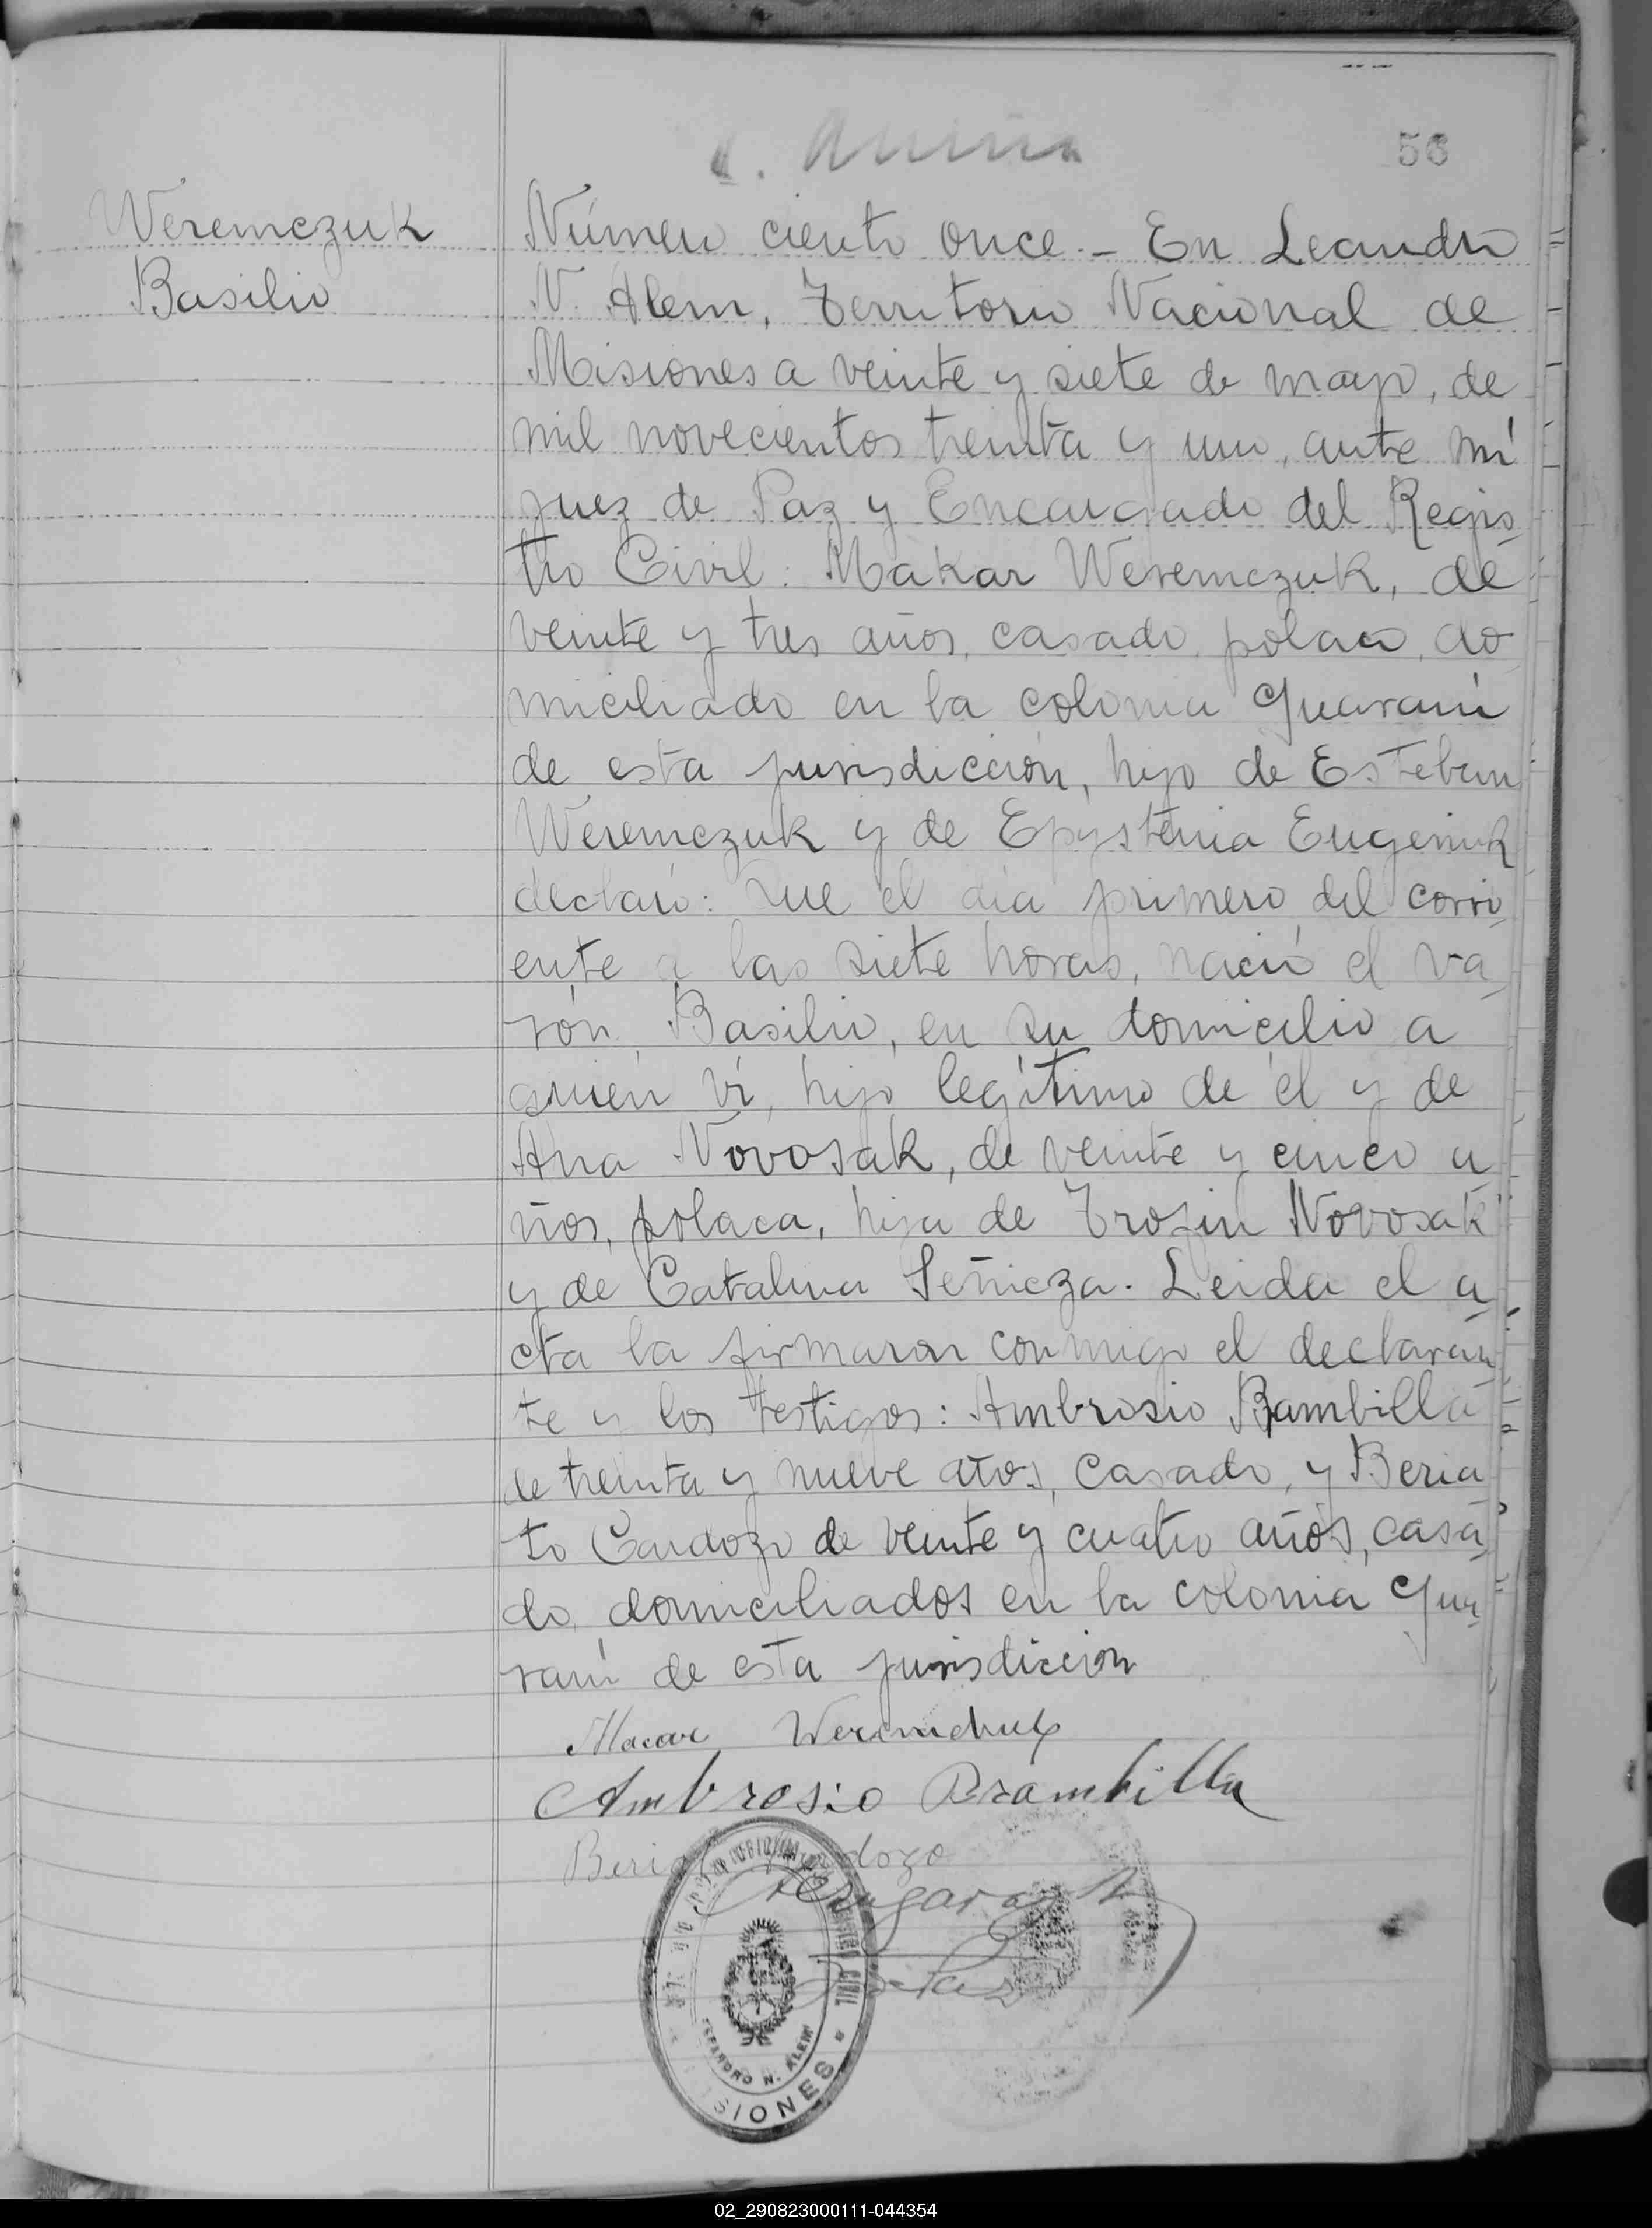 56
Weremczuk
Basilio
Número ciento once.- En Leandro
N. Alem, Territorio Nacional de
Misiones a veinte y siete de mayo, de
mil novecientos treinta y uno, ante mí
juez de Paz y Encargado del Regis
tro Civil: Makar Weremczuk, de
veinte y tres años, casado, polaco, do
miciliado en la colonia Guaraní
de esta jurisdicción, hijo de Esteban
Weremczuk y de Epystenia Eugeniuk
declaró: Que el día primero del corri
ente a las siete horas, nació el va
rón, Basilio, en su domicilio a
quién ví, hijo legítimo de él y de
Ana Novosak, de veinte y cinco a
ños, polaca, hija de Trofin Novosak
y de Catalina Señicza. Leida el a
cta la firmaron conmigo el declaran
te y los testigos: Ambrosio Bambilla
de treinta y nueve años, casado, y Beria
to Cardozo de veinte y cuatro años, casa
do, domiciliados en la colonia Gua
raní de esta jurisdiccion
Macar
Ambrosio Brambilla
LEANDRO N. ALEM
MISIONES
02_290823000111-044354